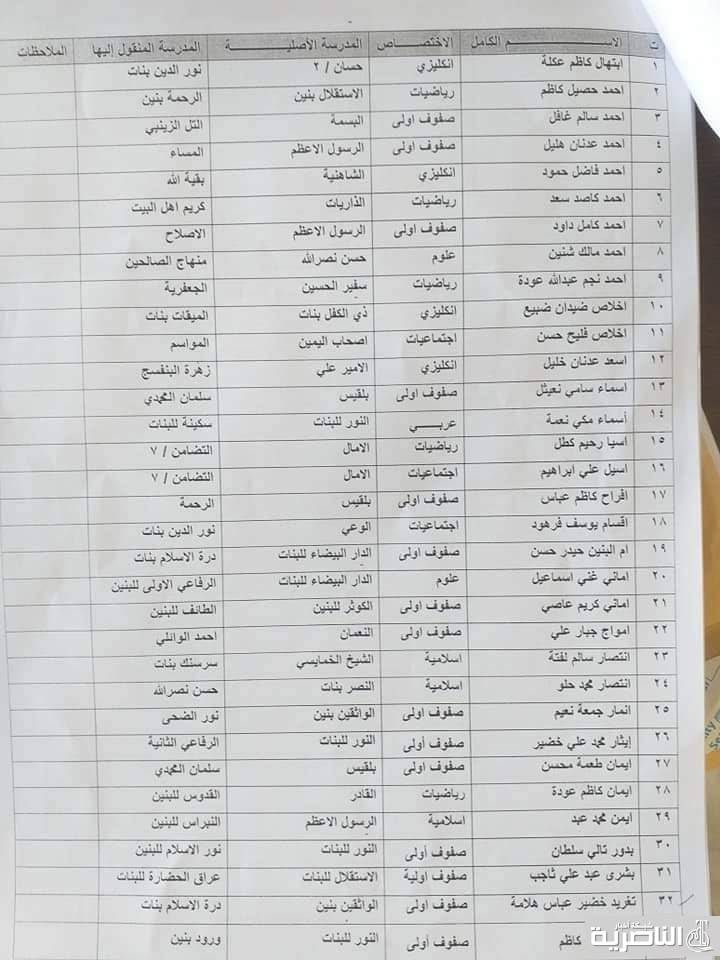 ت الاســــم الكامل الاختصـــاص المدرسة الأصليـــة المدرسة المنقول إليها الملاحظات
١ ابتهال كاظم عكلة انكليزي حسان / ٢ نور الدين بنات
٢ احمد حصيل كاظم رياضيات الاستقلال بنين الرحمة بنين
٣ احمد سالم غافل صفوف اولى البسمة التل الزينبي
٤ احمد عدنان هليل صفوف اولى الرسول الاعظم المساء
٥ احمد فاضل حمود انكليزي الشاهنية بقية الله
٦ احمد كاصد سعد رياضيات الذاريات كريم اهل البيت
٧ احمد كامل داود صفوف اولى الرسول الاعظم الاصلاح
٨ احمد مالك شنين علوم حسن نصرالله منهاج الصالحين
٩ احمد نجم عبدالله عودة رياضيات سفير الحسين الجعفرية
١٠ اخلاص ضيدان ضبيع انكليزي ذي الكفل بنات الميقات بنات
١١ اخلاص فليح حسن اجتماعيات اصحاب اليمين المواسم
١٢ اسعد عدنان خليل انكليزي الامير علي زهرة البنفسج
١٣ اسماء سامي نعيثل صفوف اولى بلقيس سلمان المحمدي
١٤ أسماء مكي نعمة عربـــي النور للبنات سكينة للبنات
١٥ اسيا رحيم كطل رياضيات الامال التضامن / ٧
١٦ اسيل علي ابراهيم اجتماعيات الامال التضامن / ٧
١٧ افراح كاظم عباس صفوف اولى بلقيس الرحمة
١٨ اقسام يوسف فرهود اجتماعيات الوعي نور الدين بنات
١٩ ام البنين حيدر حسن صفوف اولى الدار البيضاء للبنات درة الاسلام بنات
٢٠ اماني غني اسماعيل علوم الدار البيضاء للبنات الرفاعي الاولى للبنين
٢١ اماني كريم عاصي صفوف اولى الكوثر للبنين الطائف للبنين
٢٢ امواج جبار علي صفوف اولى النعمان احمد الوائلي
٢٣ انتصار سالم لفتة اسلامية الشيخ الخمايسي سرسنك بنات
٢٤ انتصار محمد حلو اسلامية النصر بنات حسن نصرالله
٢٥ انمار جمعة نعيم صفوف اولى الواثقين بنين نور الضحى
٢٦ إيثار محمد علي خضير صفوف أولى النور للبنات الرفاعي الثانية
٢٧ ايمان طعمة محسن صفوف اولى بلقيس سلمان المحمدي
٢٨ ايمان كاظم عودة رياضيات القادر القدوس للبنين
٢٩ ايمن محمد عبد اسلامية الرسول الاعظم النبراس للبنين
٣٠ بدور تالي سلطان صفوف أولى النور للبنات نور الاسلام للبنين
٣١ بشرى عبد علي ثاجب صفوف اولية الاستقلال للبنات عراق الحضارة للبنات
٣٢ تغريد خضير عباس هلامة صفوف اولى الواثقين بنين درة الاسلام بنات
كاظم صفوف أولى النور للبنات ورود بنين
شبكة اخبار
الناصرية